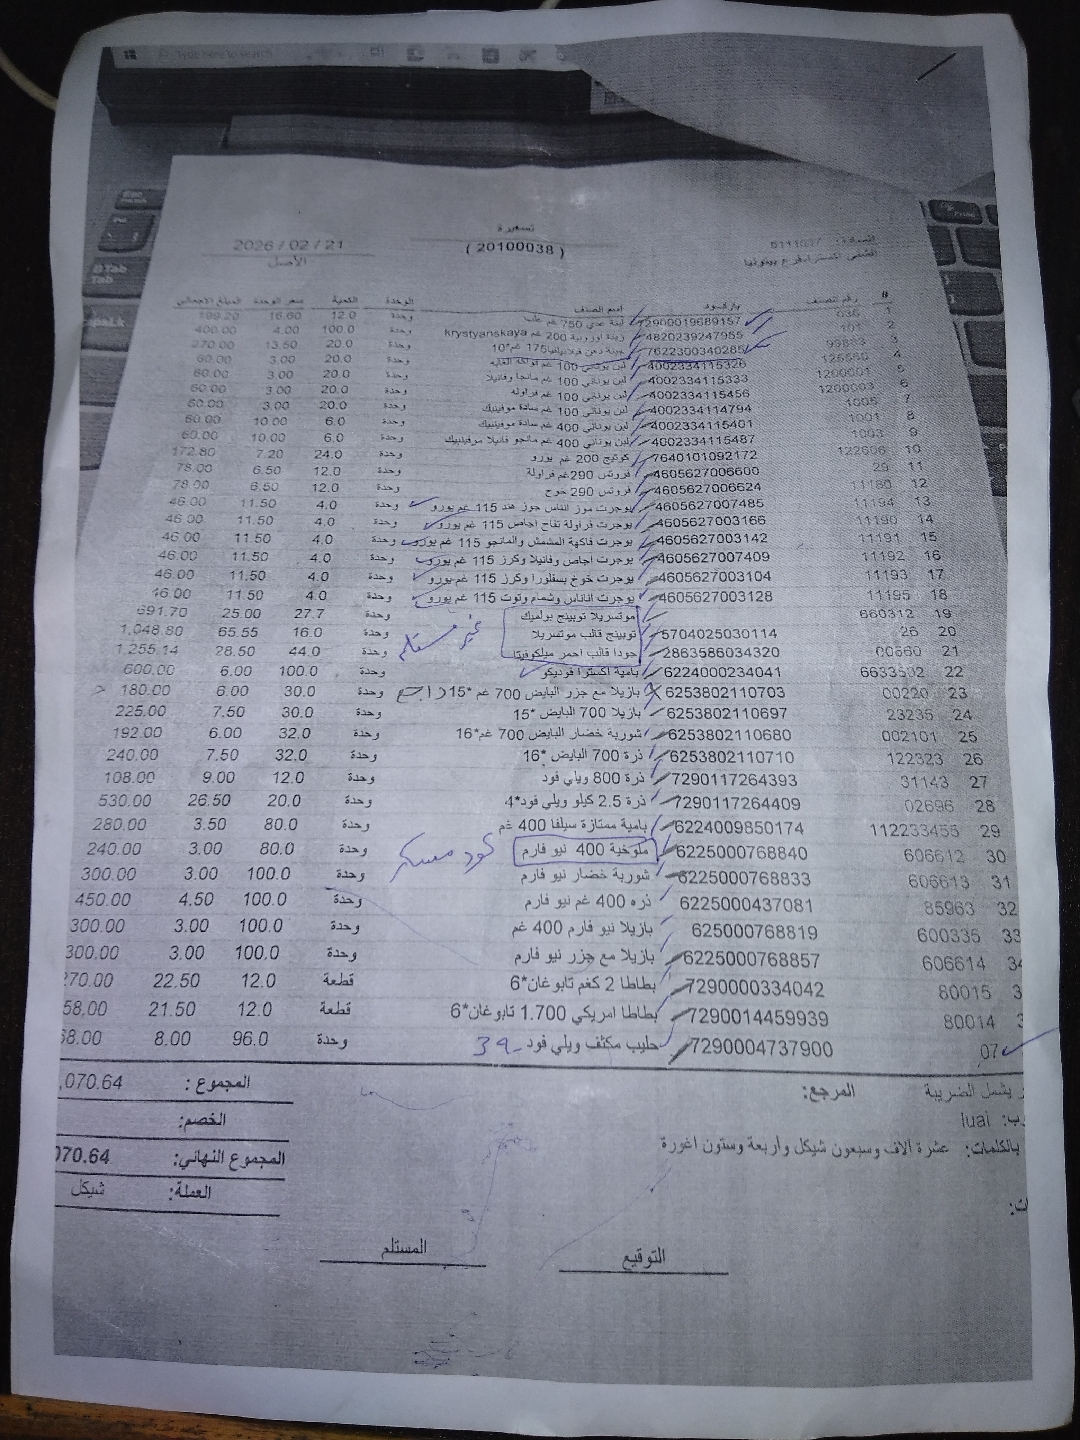 تسعيرة
( 20100038 )
2026 / 02 / 21
الأصل
# رقم الصنف باركود اسم الصنف الوحدة الكمية سعر الوحدة المبلغ الاجمالي
1 036 2900019689157 لبنة عدي 750 غم علب وحدة 12.0 16.60 199.20
2 101 4820239247955 زبدة اوروبية 200 غم krystyanskaya وحدة 100.0 4.00 400.00
3 99883 7622300340285 جبنة دهن فيلادلفيا 175 غم*10 وحدة 20.0 13.50 270.00
4 125580 4002334115326 لبن يوناني 100 غم فواكه الغابه وحدة 20.0 3.00 60.00
5 1200001 4002334115333 لبن يوناني 100 غم مانجا وفانيلا وحدة 20.0 3.00 60.00
6 1200003 4002334115456 لبن يوناني 100 غم فراوله وحدة 20.0 3.00 60.00
7 1005 4002334114794 لبن يوناني 100 غم سادة موفينيك وحدة 20.0 3.00 60.00
8 1001 4002334115401 لبن يوناني 400 غم سادة موفينيك وحدة 6.0 10.00 60.00
9 1003 4002334115487 لبن يوناني 400 غم مانجو فانيلا موفينيك وحدة 6.0 10.00 60.00
10 122606 7640101092172 كوتيج 200 غم يورو وحدة 24.0 7.20 172.80
11 29 4605627006600 فروتس 290غم فراولة وحدة 12.0 6.50 78.00
12 11180 4605627006624 فروتس 290 خوخ وحدة 12.0 6.50 78.00
13 11194 4605627007485 يوجرت موز اناناس جوز هند 115 غم يورو وحدة 4.0 11.50 46.00
14 11190 4605627003166 يوجرت فراولة تفاح اجاص 115 غم يورو وحدة 4.0 11.50 46.00
15 11191 4605627003142 يوجرت فاكهة المشمش والمانجو 115 غم يورو وحدة 4.0 11.50 46.00
16 11192 4605627007409 يوجرت اجاص وفانيلا وكرز 115 غم يورو وحدة 4.0 11.50 46.00
17 11193 4605627003104 يوجرت خوخ بسفلورا وكرز 115 غم يورو وحدة 4.0 11.50 46.00
18 11195 4605627003128 يوجرت اناناس وشمام وتوت 115 غم يورو وحدة 4.0 11.50 46.00
19 660312 موتسريلا توبينج بولميك وحدة 27.7 25.00 691.70
20 26 5704025030114 توبينج قالب موتسريلا غير مستلم وحدة 16.0 65.55 1,048.80
21 00660 2863586034320 جودا قالب احمر ميلكوفيتا وحدة 44.0 28.50 1,255.14
22 6633502 6224000234041 بامية اكسترا فوديكو وحدة 100.0 6.00 600.00
23 00220 6253802110703 بازيلا مع جزر البايض 700 غم *15 راجع وحدة 30.0 6.00 180.00
24 23235 6253802110697 بازيلا 700 البايض *15 وحدة 30.0 7.50 225.00
25 002101 6253802110680 شوربة خضار البايض 700 غم*16 وحدة 32.0 6.00 192.00
26 122323 6253802110710 ذرة 700 البايض *16 وحدة 32.0 7.50 240.00
27 31143 7290117264393 ذرة 800 ويلي فود وحدة 12.0 9.00 108.00
28 02696 7290117264409 ذرة 2.5 كيلو ويلي فود*4 وحدة 20.0 26.50 530.00
29 112233455 6224009850174 بامية ممتازة سيلفا 400 غم وحدة 80.0 3.50 280.00
30 606612 6225000768840 ملوخية 400 نيو فارم كود وحدة 80.0 3.00 240.00
31 606613 6225000768833 شوربة خضار نيو فارم وحدة 100.0 3.00 300.00
32 85963 6225000437081 ذره 400 غم نيو فارم وحدة 100.0 4.50 450.00
33 600335 625000768819 بازيلا نيو فارم 400 غم وحدة 100.0 3.00 300.00
606614 6225000768857 بازيلا مع جزر نيو فارم وحدة 100.0 3.00 300.00
80015 7290000334042 بطاطا 2 كغم تابوغان*6 قطعة 12.0 22.50 270.00
80014 7290014459939 بطاطا امريكي 1.700 تابوغان*6 قطعة 12.0 21.50 58.00
07 7290004737900 حليب مكثف ويلي فود وحدة 96.0 8.00 68.00
يشمل الضريبة المرجع: المجموع : ,070.64
luai الخصم:
بالكلمات: عشرة آلاف وسبعون شيكل وأربعة وستون اغورة المجموع النهائي: 070.64
العملة: شيكل
التوقيع المستلم